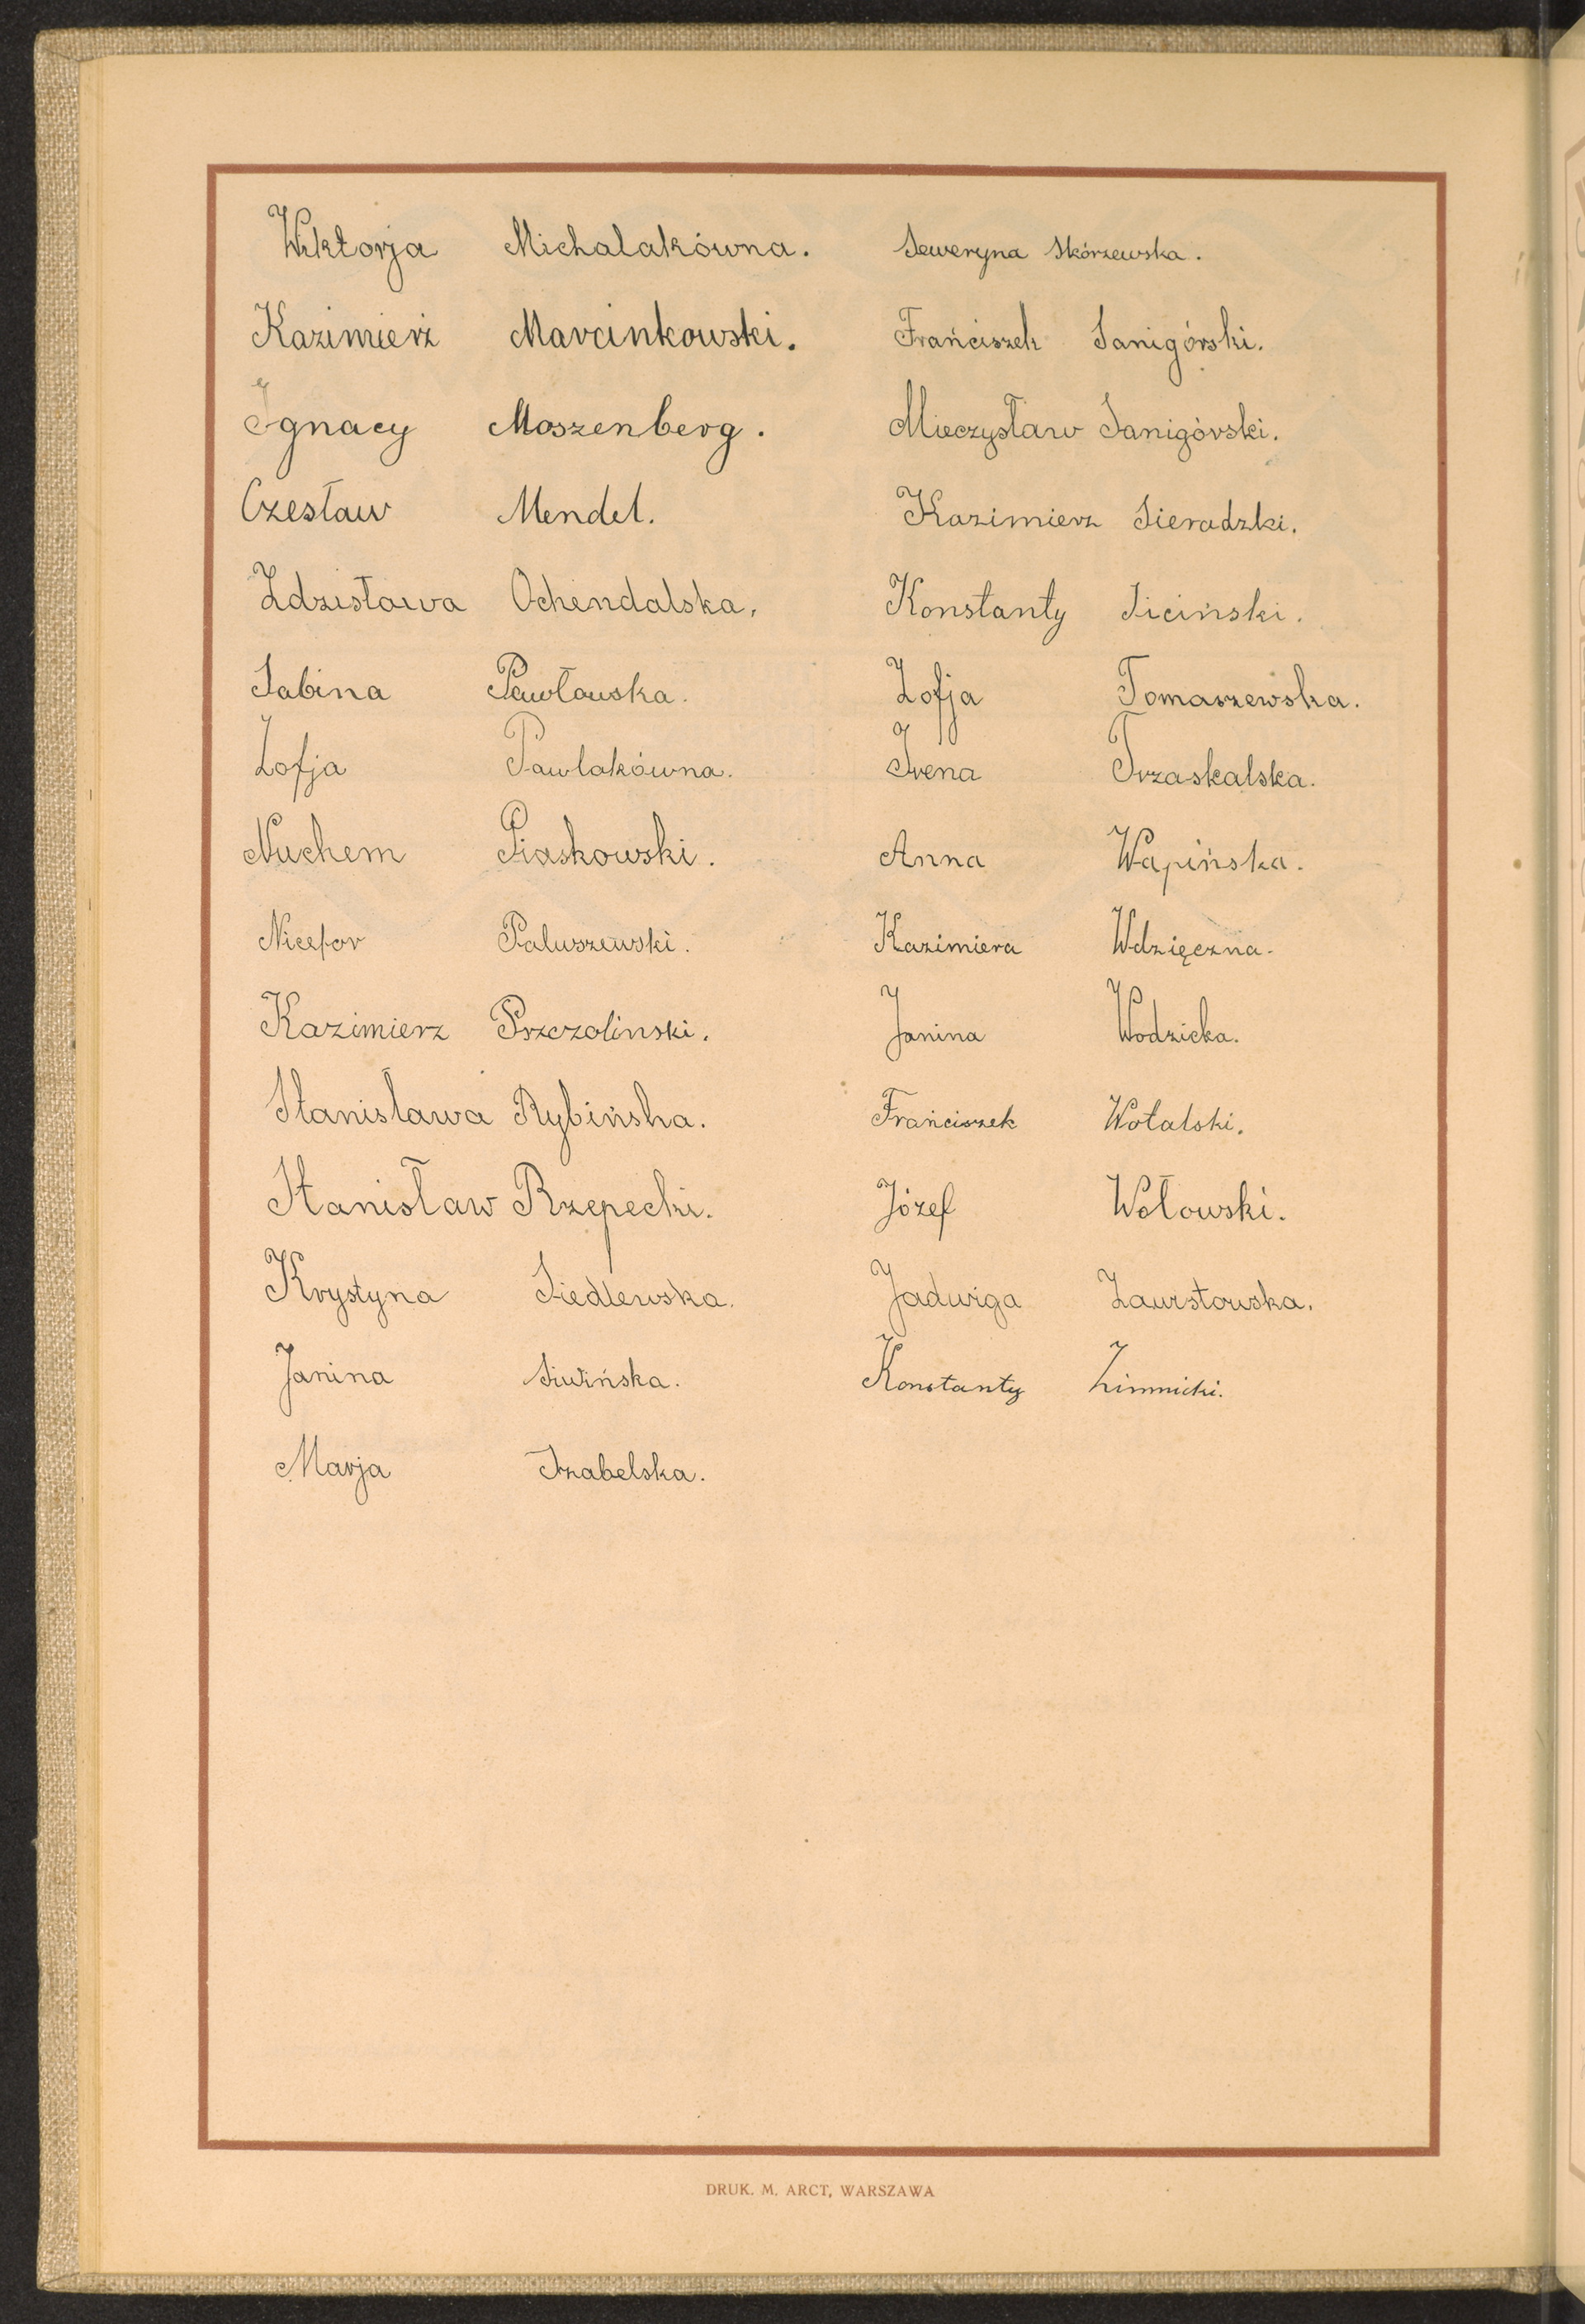 Wiktorja Michalakówna.
Kazimierz Marcinkowski.
Ignacy Moszenberg.
Czesław Mendel.
Zdzisława Ochendalska.
Sabina Pawłowska.
Zofja Pawlakówna.
Nuchem Piaskowski.
Nicefor Paluszewski.
Kazimierz Pszczolinski.
Stanisława Rybińska.
Stanisław Rzepecki.
Krystyna Siedlewska.
Janina Siwińska.
Marja
Seweryna Skórzewska.
Franciszek Sanigórski.
Mieczysław Sanigórski.
Kazimierz Sieradzki.
Konstanty Siciński.
Zofja Tomaszewska.
Irena Trzaskalska.
Anna Wapińska.
Kazimiera Wdzięczna.
Janina Wodzicka.
Franciszek Wotalski.
Józef Wołowski.
Jadwiga Zawistowska.
Konstanty Zimnicki.
DRUK. M. ARCT, WARSZAWA